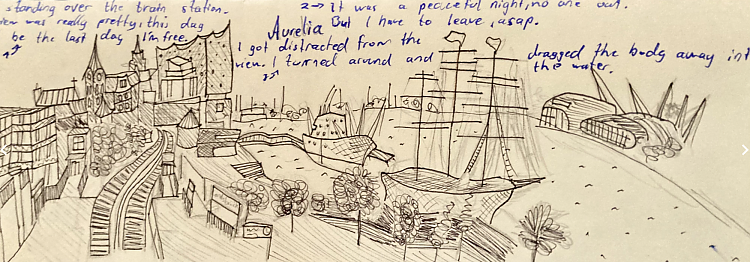 standing over the train station.
view was really pretty, this day
be the last day I'm free.
2→ It was a peaceful night, no one out.
But I have to leave, asap.
Aurelia
I got distracted from the
view. I turned around and
3→
dragged the body away int
the water.